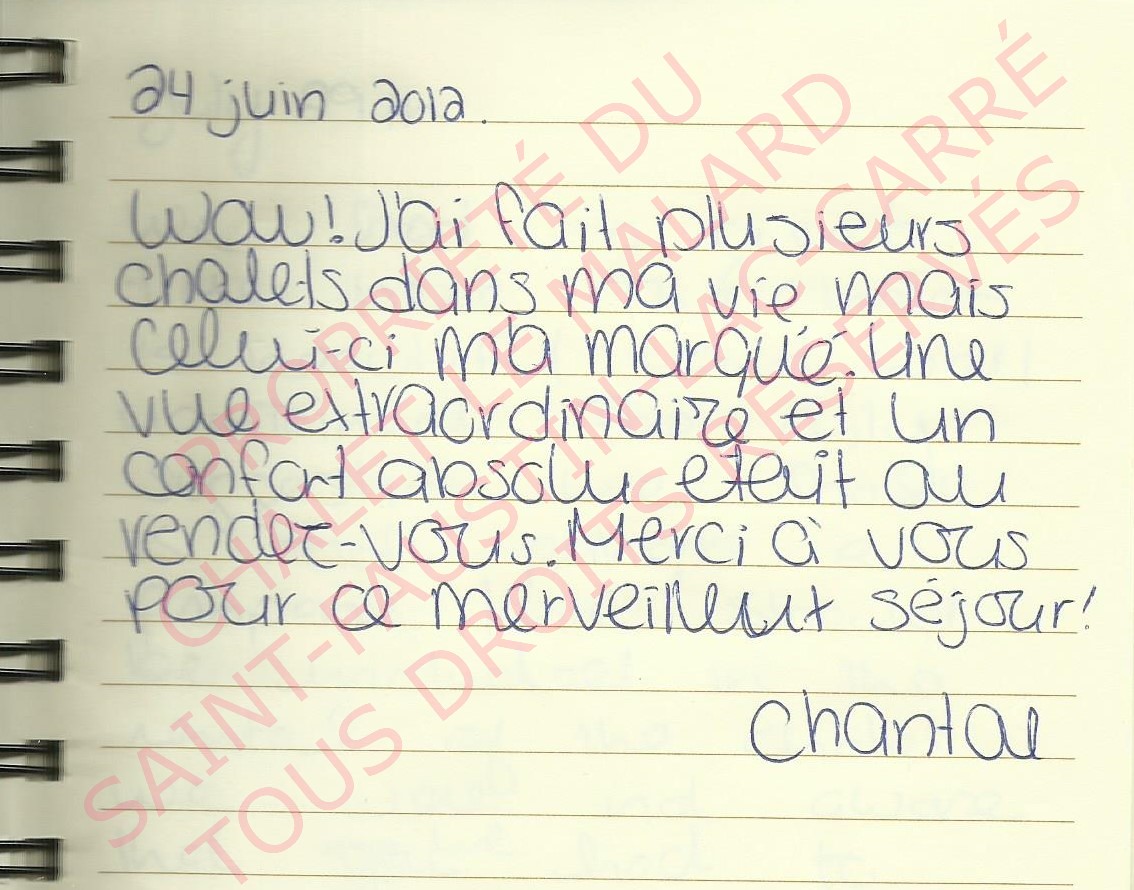 24 juin 2012.
Wow! J'ai fait plusieurs
chalets dans ma vie mais
celui-ci m'a marqué. Une
vue extraordinaire et un
confort absolu etait au
rendez-vous. Merci à vous
pour ce merveilleux séjour!
Chantal
PROPRIÉTÉ DU
CHALET LE MALARD
SAINT-FAUSTIN-LAC-CARRÉ
TOUS DROITS RÉSERVÉS